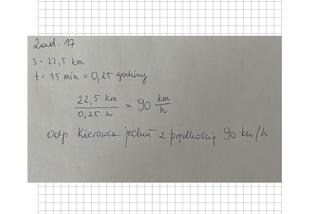 Zad. 17
s = 22,5 km
t = 15 min = 0,25 godziny
22,5 km / 0,25 h = 90 km/h
Odp Kierowca jechał z prędkością 90 km/h